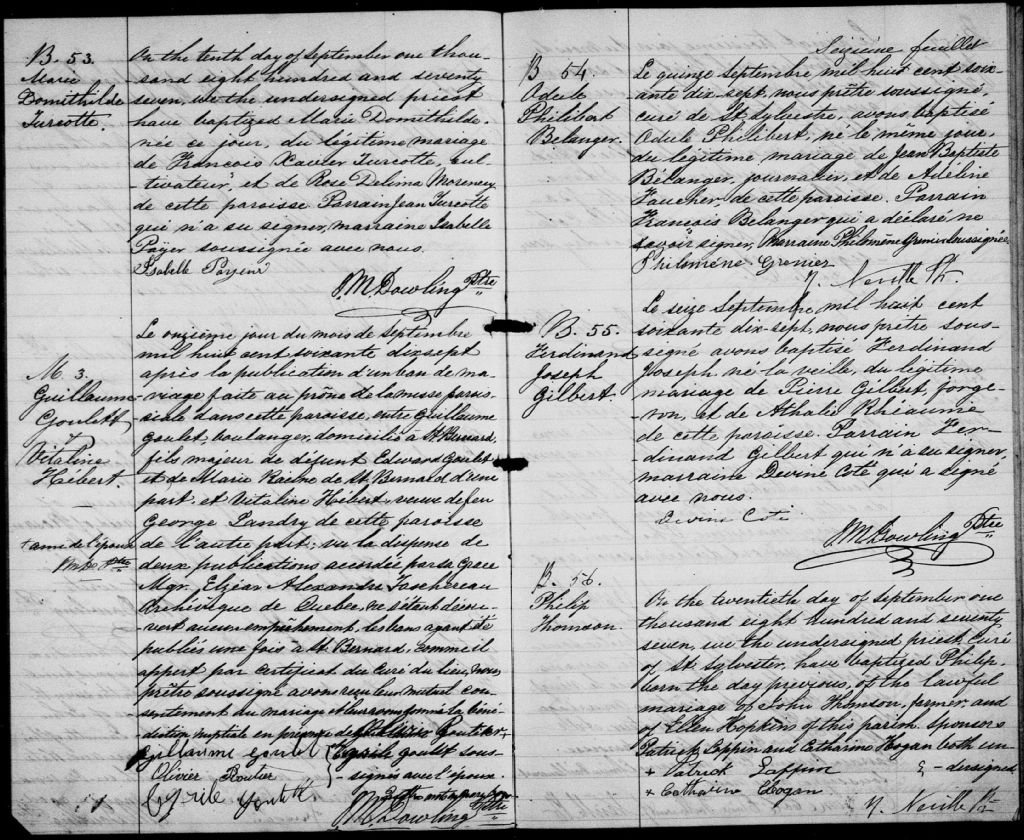 B. 53.
Marie
Domithilde
Turcotte.
On the tenth day of September one thou-
sand eight hundred and seventy
seven, we the undersigned priest
have baptized Marie Domithilde,
née ce jour, du légitime mariage
de Francois Xavier Turcotte, cul-
tivateur, et de Rose Delima Morency
de cette paroisse Parrain Jean Turcotte
qui n'a su signer, marraine Isabelle
Payer soussignée avec nous.
Isabelle
J. M Dowling Ptre
M. 3.
Guillaume
Goulett
&
Vitaline
Hebert.
+ ami de l'époux
Ptre
Le onzième jour du mois de Septembre
mil huit cent soixante dix sept
après la publication d'un ban de ma-
riage faite au prône de la messe parois-
siale dans cette paroisse, entre Guillaume
Goulet, boulanger, domicilié à St Bernard,
fils majeur de défunt Edward Goulet
et de Marie Racine de St. Bernard d'une
part, et Vitaline Hébert, veuve de feu
George Landry de cette paroisse
de l'autre part; vu la dispense de
deux publications accordée par sa Grace
Mgr. Elzéar Alexandre Taschereau
Archévêque de Quebec, ne s'étant décou-
vert aucun empêchement, les bans ayant été
publiés une fois à St. Bernard, comme il
appert par certificat du Curé du lieu, nous
prêtre soussigné avons reçu leur mutuel con-
sentement du mariage & leur avons donné la béné-
diction nuptiale en présence de Olivier Routier +
Guillaume Goulet
Cyrile Goulet sous-
Olivier Routier
- signés avec l'époux.
Cyrile Goulett
J. M Dowling Ptre
Seizième feuillet
B 54.
Odule
Philibert
Belanger.
Le quinze Septembre mil huit cent soix-
ante dix-sept, nous prêtre soussigné,
curé de St. Sylvestre, avons baptisé
Odule Philibert, né le même jour,
du légitime mariage de Jean Baptiste
Bélanger, journalier, et de Adéline
Faucher, de cette paroisse. Parrain
Francois Belanger qui a déclaré ne
savoir signer, Marraine Philomène Grenier soussignée
Philomène Grenier
N. Neville Pr.
B. 55.
Ferdinand
Joseph
Gilbert.
Le seize Septembre mil huit cent
soixante dix-sept, nous prêtre sous-
signé avons baptisé Ferdinand
Joseph, né la veille, du légitime
mariage de Pierre Gilbert forge-
ron, et de Athalie Rhéaume
de cette paroisse. Parrain Fer-
dinand Gilbert qui n'a su signer,
marraine Devine Coté qui a signé
avec nous.
Devine Coté
J. M Dowling Ptre
B. 56.
Philip
Thomson.
On the twentieth day of September one
thousand eight hundred and seventy
seven, we the undersigned priest Curé
of St. Sylvester, have baptized Philip,
born the day previous, of the lawful
marriage of John Thomson, farmer, and
of Ellen Hopkins of this parish. Sponsors
Patrick Lappin and Catharine Hogan both un-
+ Patrick Lappin - dersigned
+ Catharine Hogan
N. Neville Pr